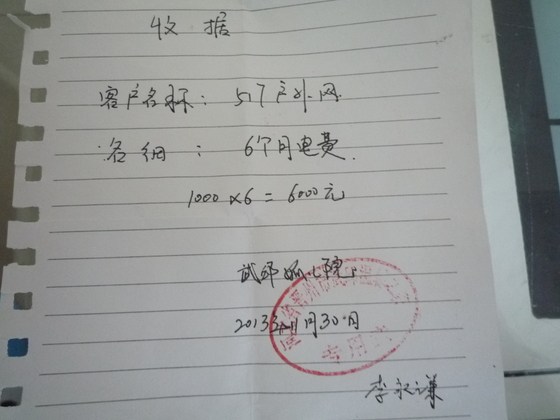 收据
客户名称：517户外网
名细：6个月电费
1000×6=6000元
武邱孤儿院
2013年11月30日
专用
李永谦